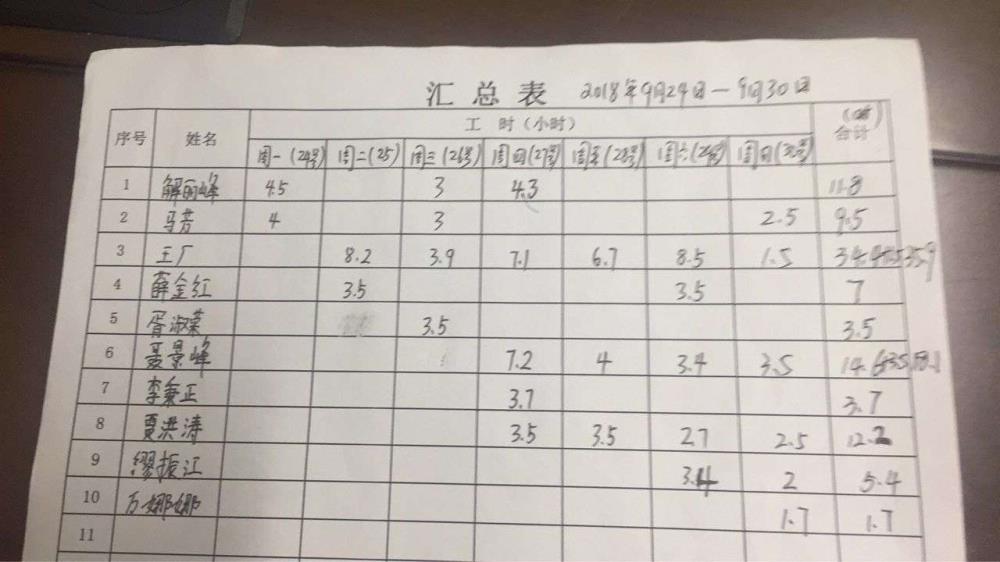 汇总表 2018年9月24日—9月30日
序号 姓名 工 时（小时） 合计
周一(24号) 周二(25) 周三(26号) 周四(27号) 周五(28号) 周六(29号) 周日(30号)
1 解丽峰 4.5 3 4.3 11.8
2 马芳 4 3 2.5 9.5
3 王厂 8.2 3.9 7.1 6.7 8.5 1.5 34.4 35.9
4 薛金红 3.5 3.5 7
5 胥淑荣 3.5 3.5
6 聂景峰 7.2 4 3.4 3.5 14.6 18.1
7 李秉正 3.7 3.7
8 贾洪涛 3.5 3.5 2.7 2.5 12.2
9 缪振江 3.4 2 5.4
10 万娜娜 1.7 1.7
11